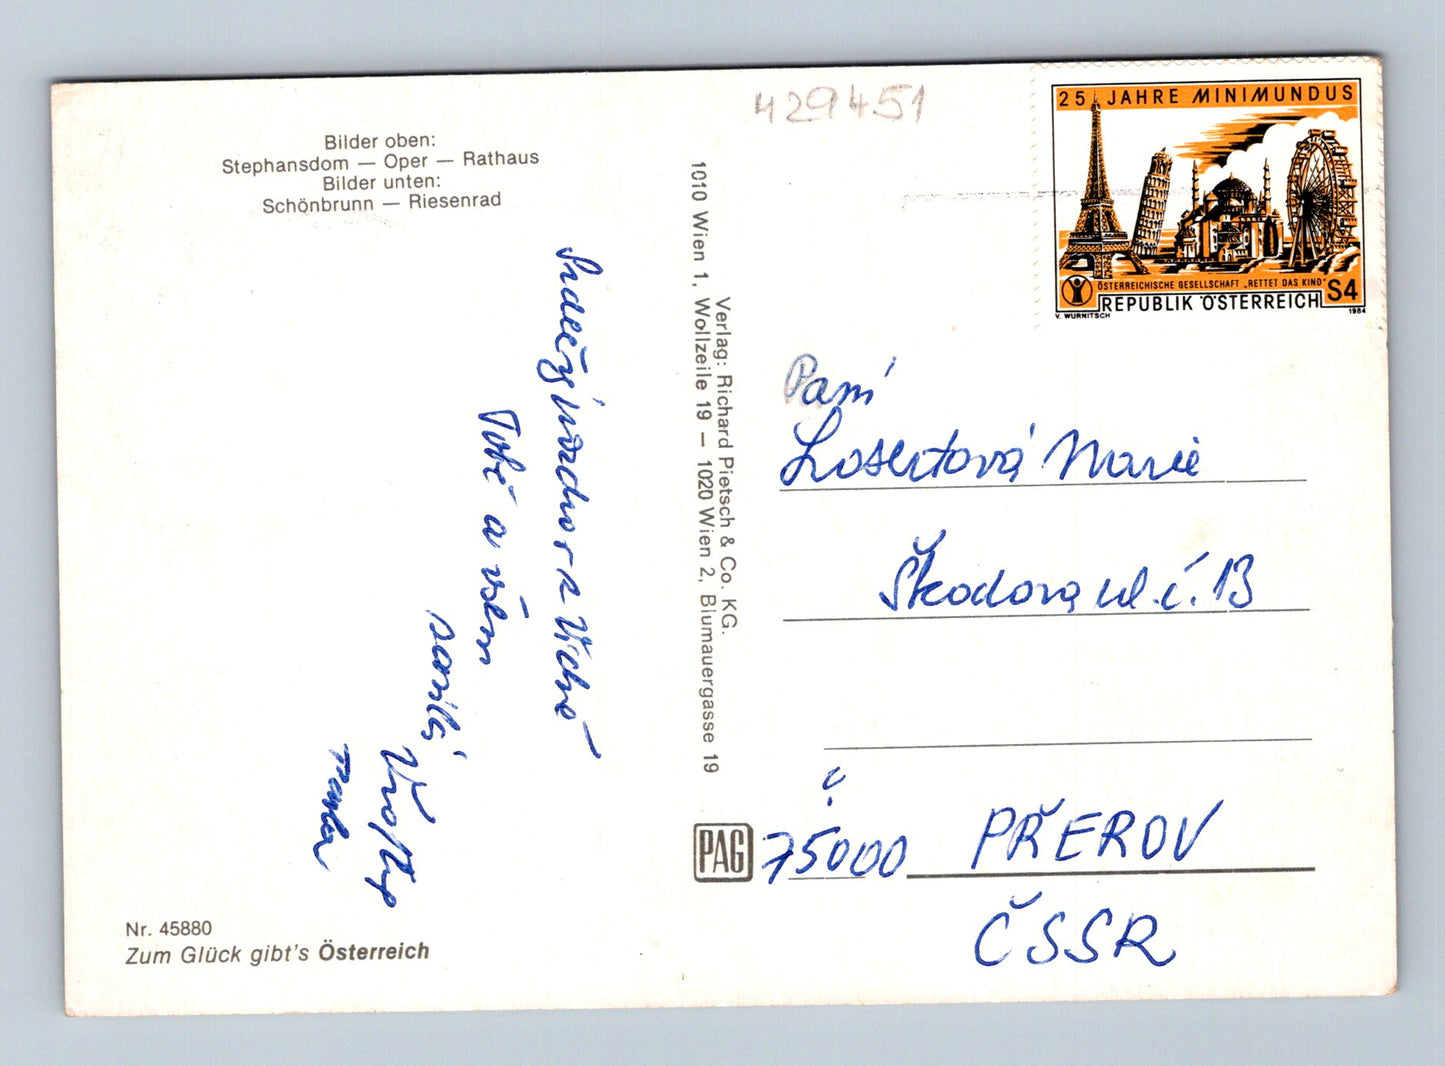 429451
25 JAHRE MINIMUNDUS
ÖSTERREICHISCHE GESELLSCHAFT „RETTET DAS KIND"
REPUBLIK ÖSTERREICH S4
V. WURNITSCH 1984
Bilder oben:
Stephansdom — Oper — Rathaus
Bilder unten:
Schönbrunn — Riesenrad
Srdečný pozdrav z Vídně
Tobě a všem
posílá
Verlag: Richard Pietsch & Co. KG.
1010 Wien 1, Wollzeile 19 — 1020 Wien 2, Blumauergasse 19
Paní
Losertová Marie
Škodova ul. č. 13
75000 PŘEROV
ČSSR
PAG
Nr. 45880
Zum Glück gibt's Österreich